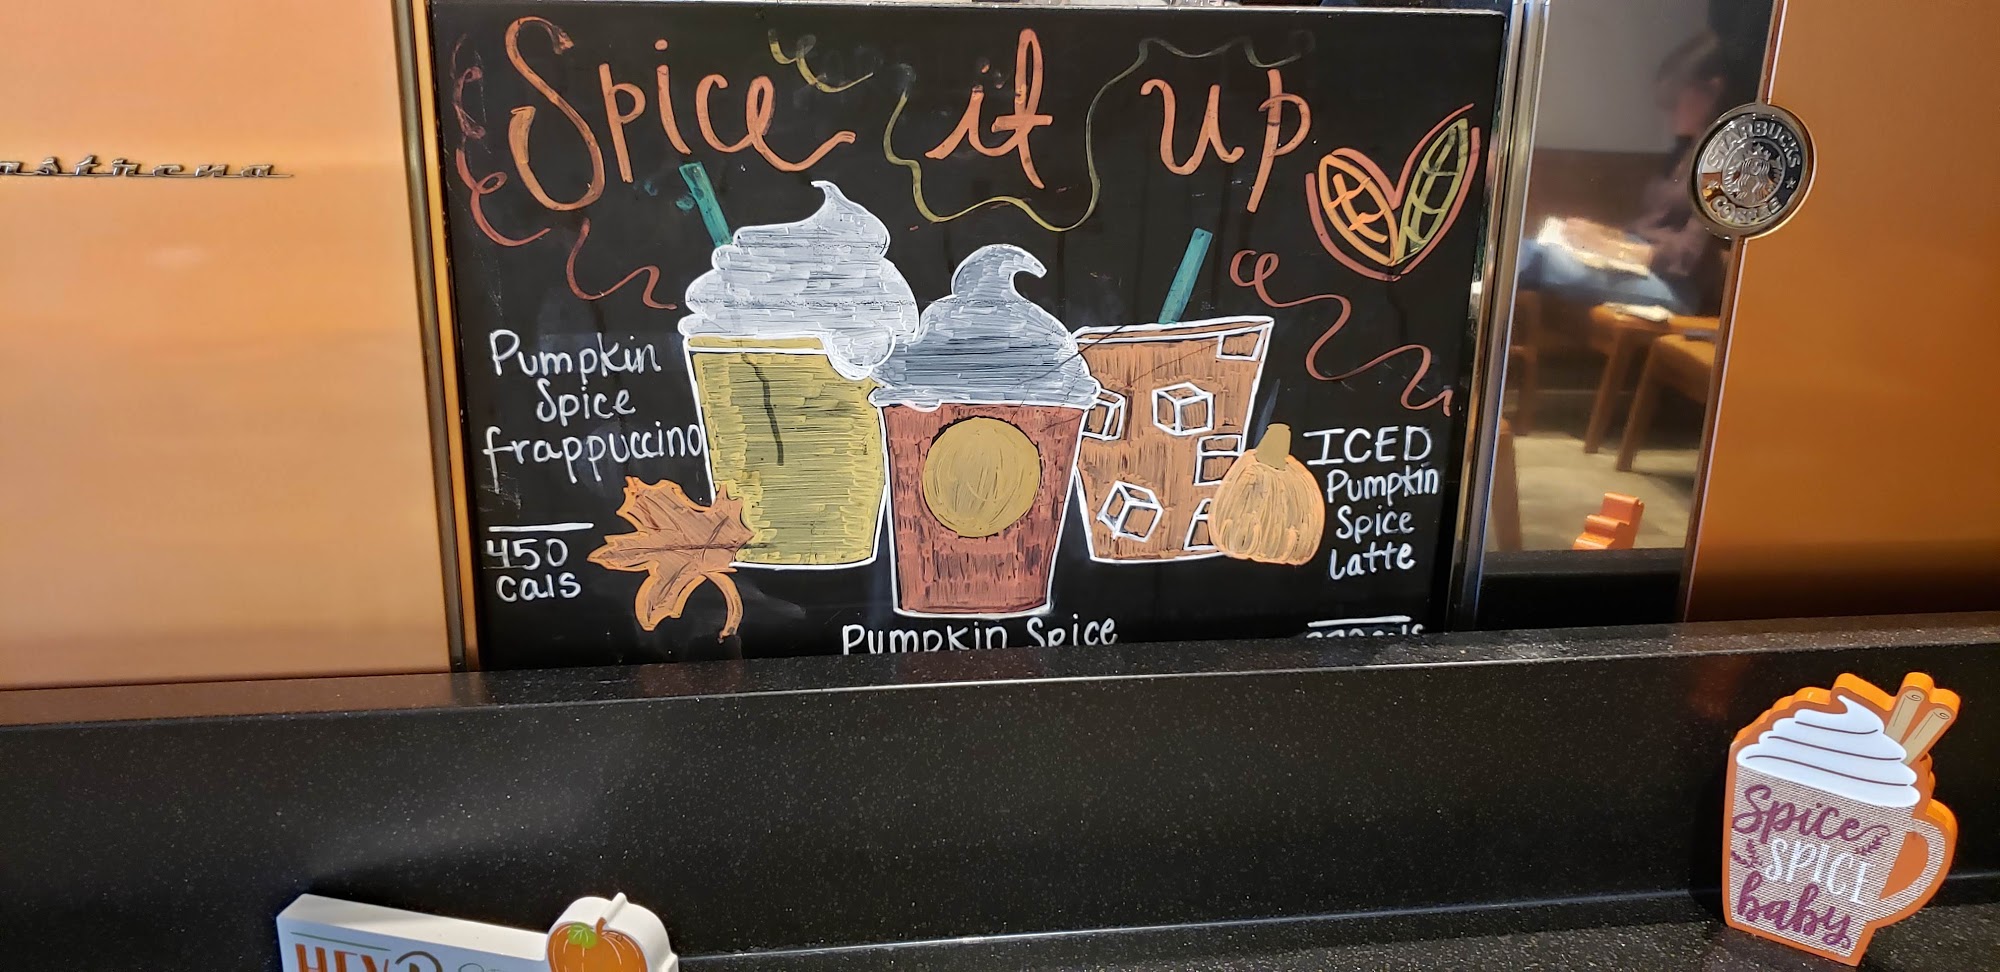 Spice it up
Pumpkin
Spice
frappuccino
450
cals
Pumpkin Spice
ICED
Pumpkin
Spice
Latte
STARBUCKS
COFFEE
Spice
SPICE
baby
HEY